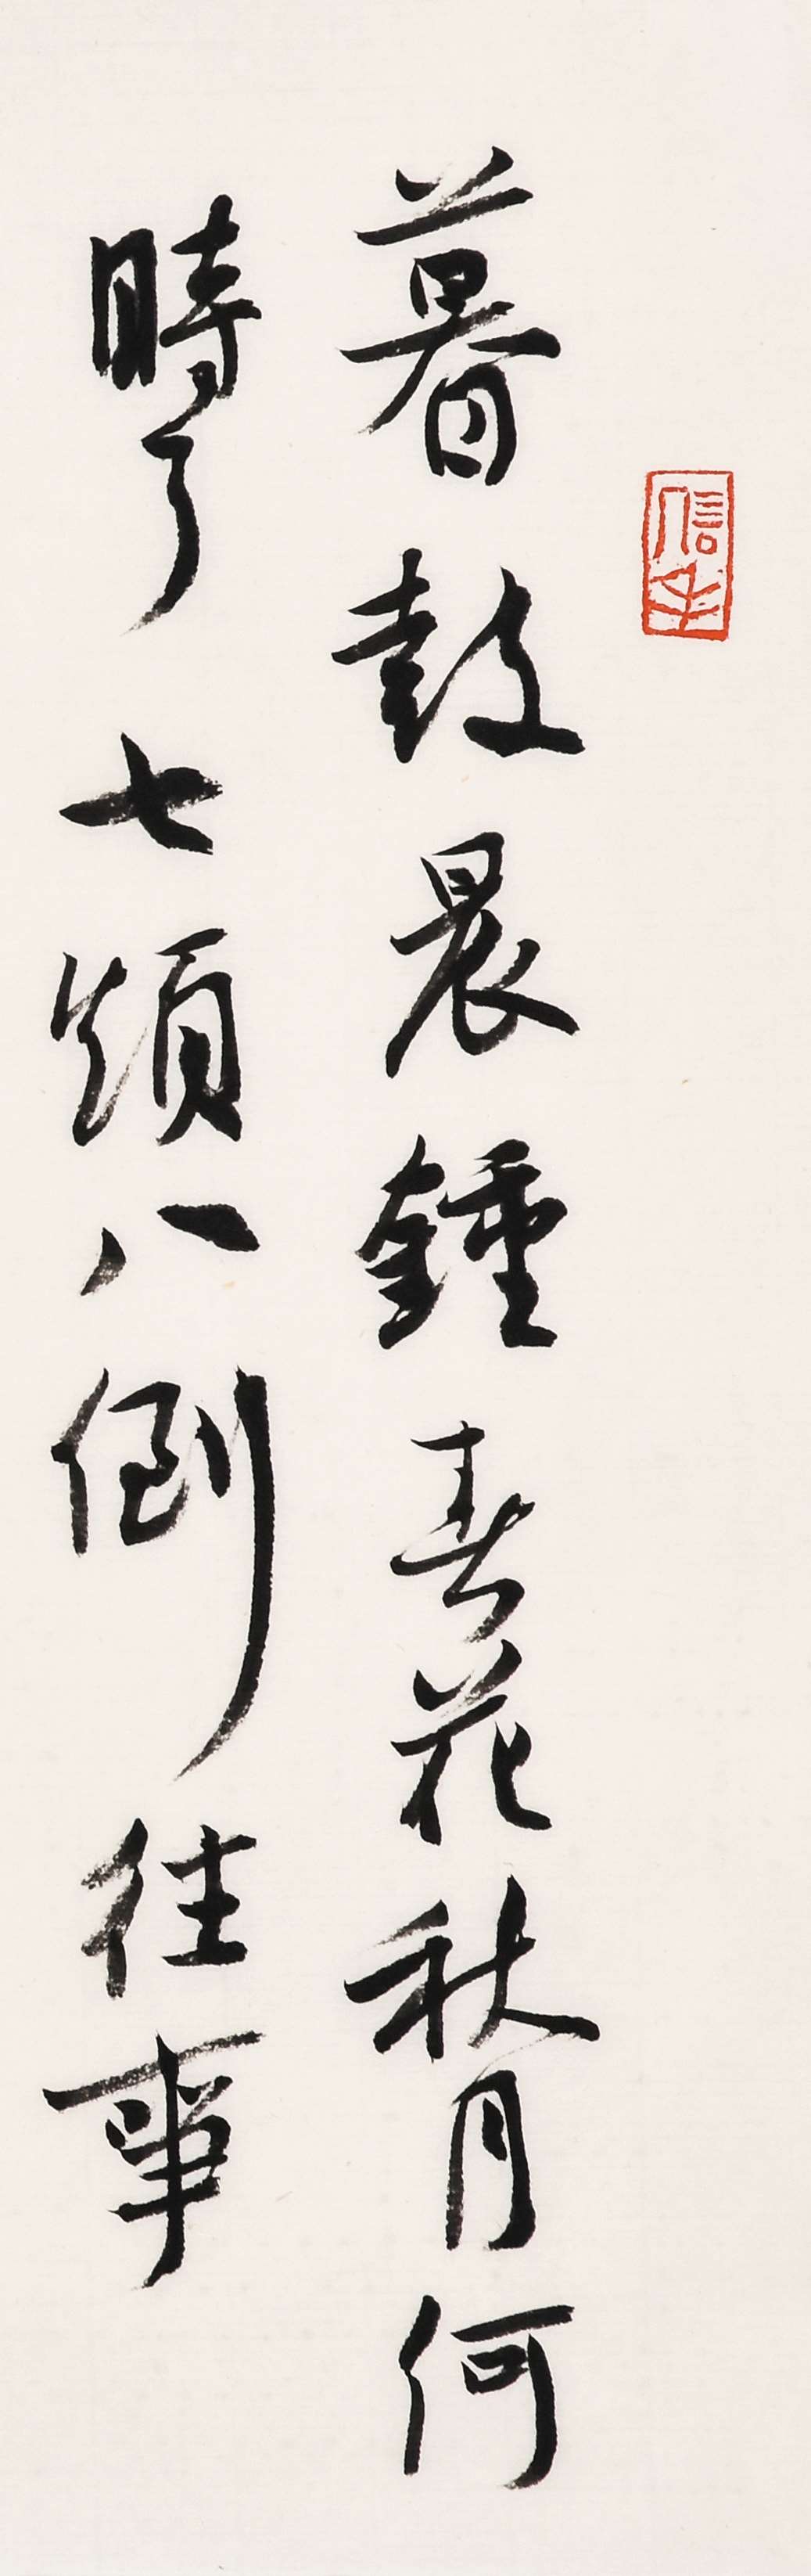 暮鼓晨鍾春花秋月何
時了七顛八倒往事
信手